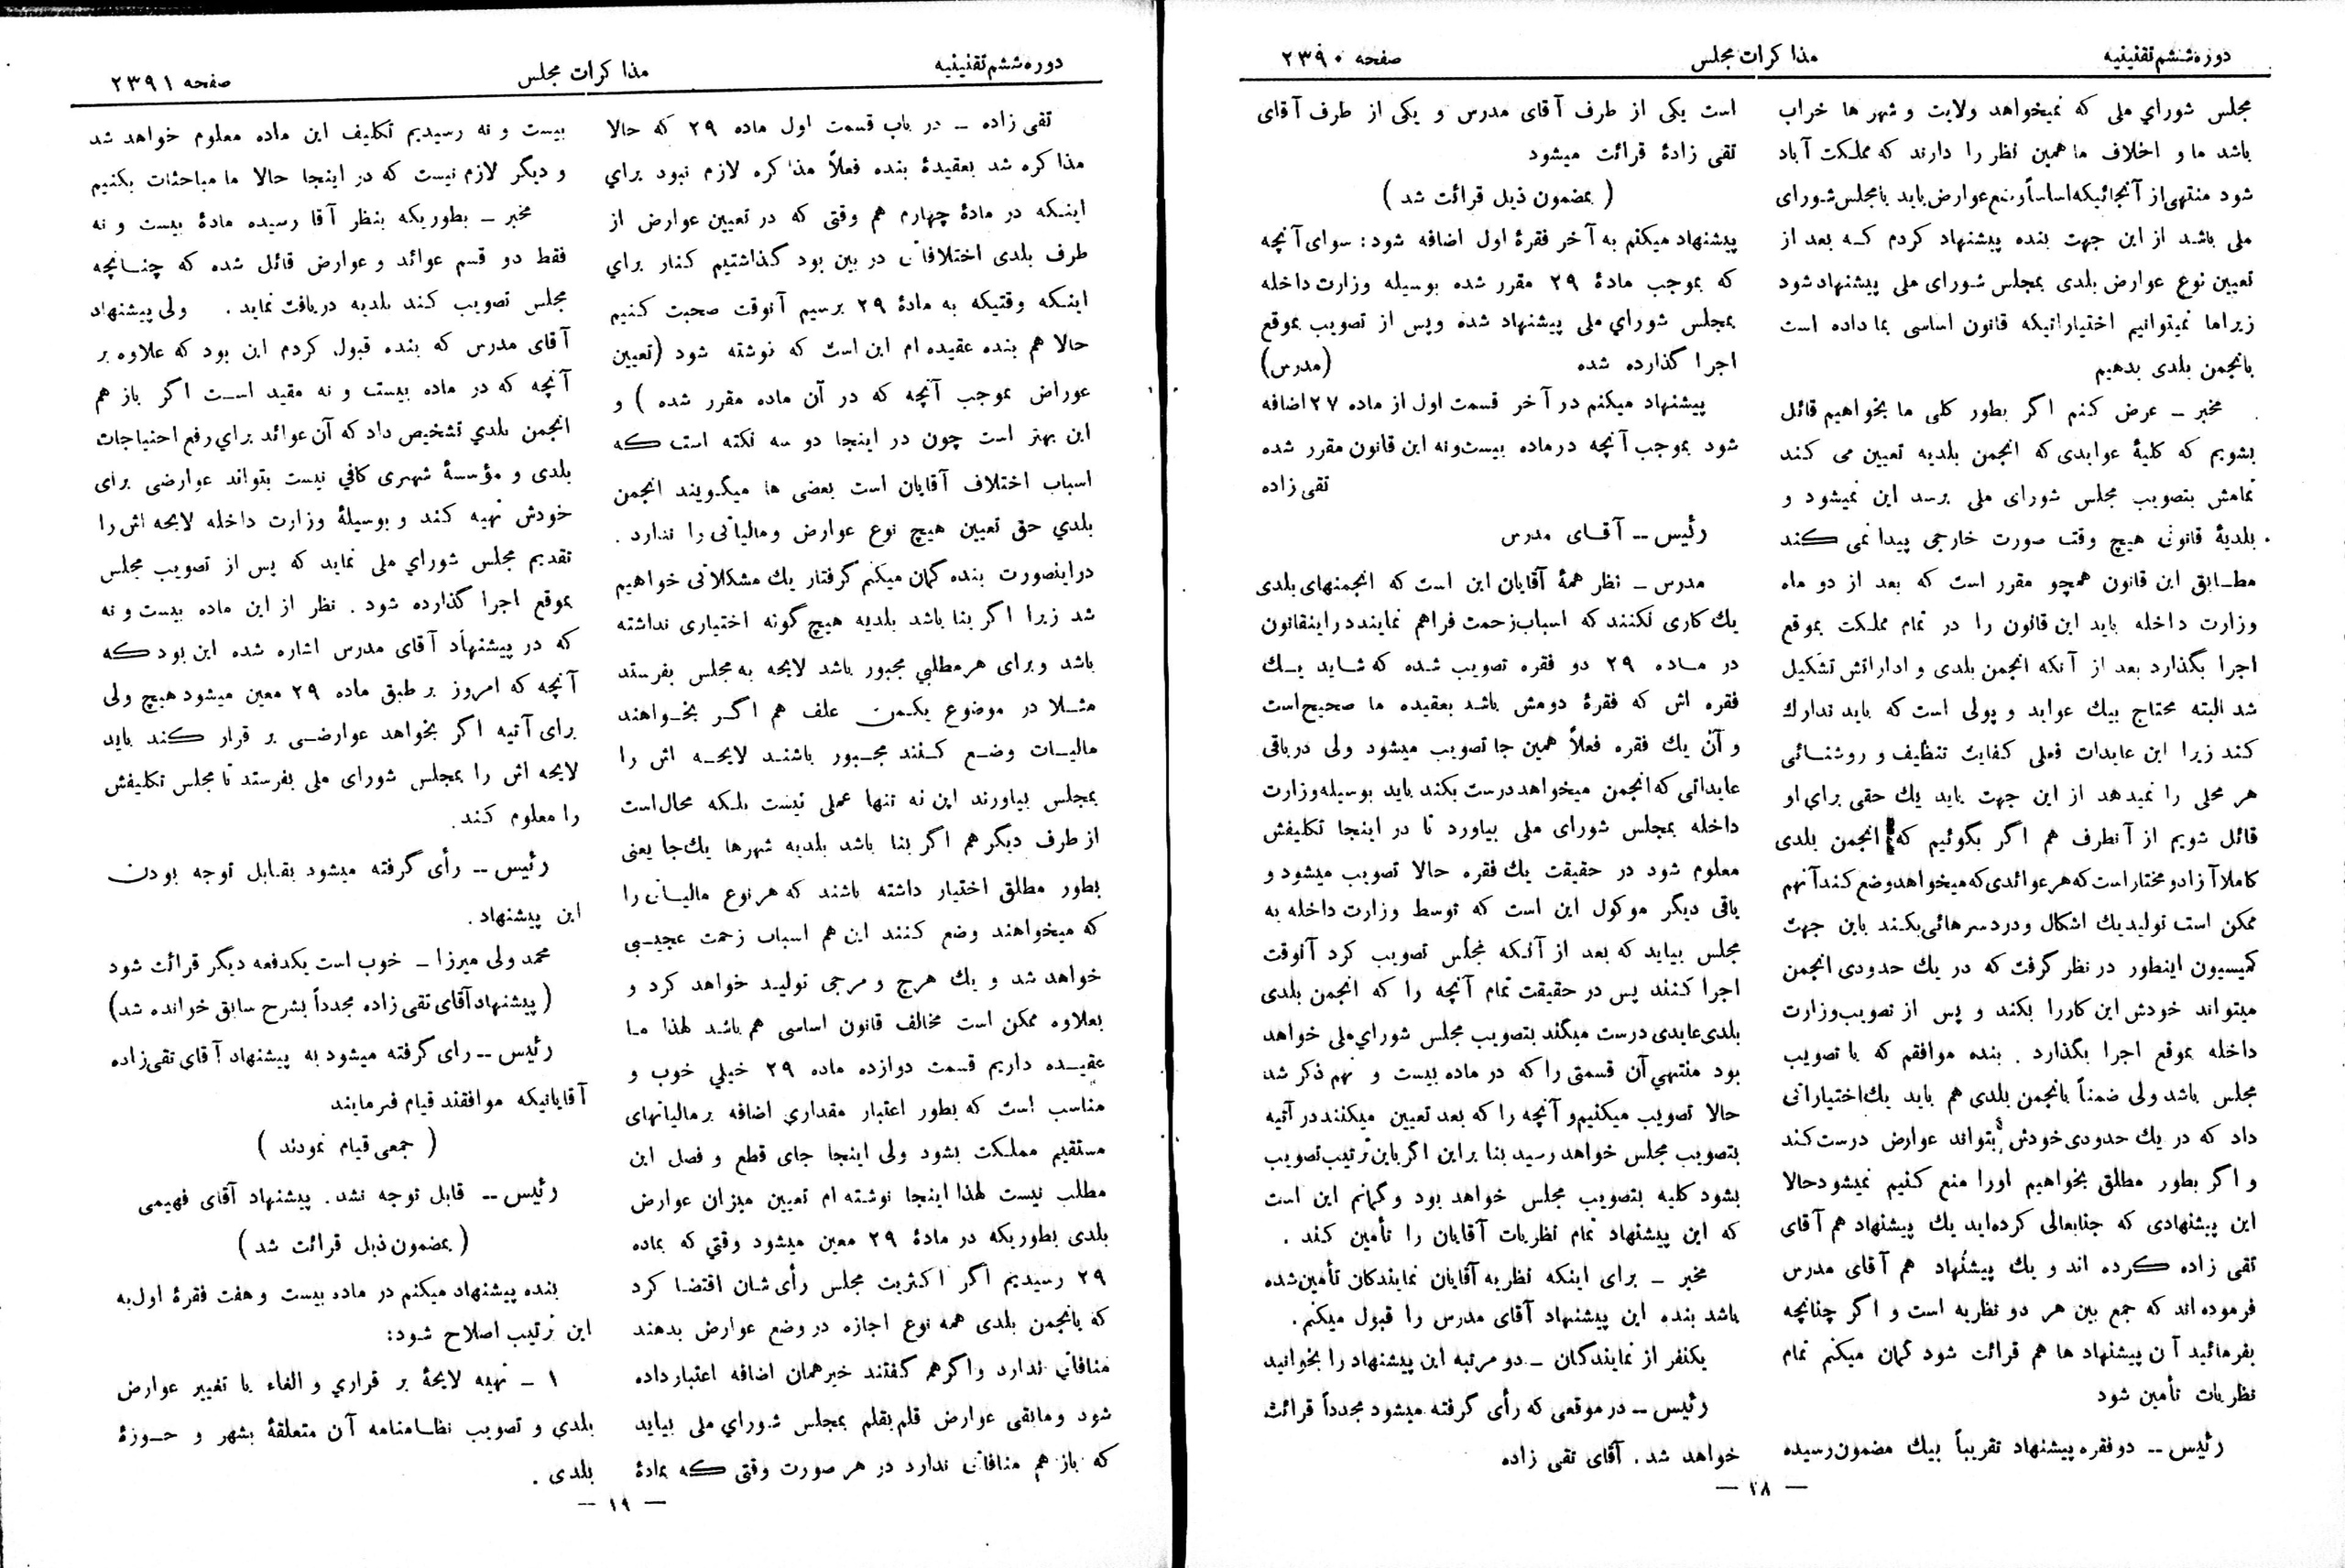 دوره ششم تقنینیه
مذاکرات مجلس
صفحه ۲۳۹۰
مجلس شورای ملی که نمیخواهد ولایت و شهر ها خراب
باشد ما و اخلاف ما همین نظر را دارند که مملکت آباد
شود منتهی از آنجائیکه اساساً وضع عوارض باید با مجلس شورای
ملی باشد از این جهت بنده پیشنهاد کردم که بعد از
تعیین نوع عوارض بلدی بمجلس شورای ملی پیشنهاد شود
زیرا ما نمیتوانیم اختیاراتیکه قانون اساسی بما داده است
بانجمن بلدی بدهیم
مخبر ـ عرض کنم اگر بطور کلی ما بخواهیم قائل
بشویم که کلیهٔ عوایدی که انجمن بلدیه تعیین می کند
تمامش بتصویب مجلس شورای ملی برسد این نمیشود و
بلدیهٔ قانونی هیچ وقت صورت خارجی پیدا نمی کند
مطابق این قانون همچو مقرر است که بعد از دو ماه
وزارت داخله باید این قانون را در تمام مملکت بموقع
اجرا بگذارد بعد از آنکه انجمن بلدی و اداراتش تشکیل
شد البته محتاج بیك عواید و پولی است که باید تدارك
کند زیرا این عایدات فعلی کفایت تنظیف و روشنائی
هر محلی را نمیدهد از این جهت باید یك حقی برای او
قائل شویم از آنطرف هم اگر بگوئیم که انجمن بلدی
کاملا آزاد و مختار است که هر عوائدی که میخواهد وضع کند آنهم
ممکن است تولید یك اشکال و دردسر هائی بکند باین جهت
کمیسیون اینطور در نظر گرفت که در یك حدودی انجمن
میتواند خودش این کار را بکند و پس از تصویب وزارت
داخله بموقع اجرا بگذارد . بنده موافقم که با تصویب
مجلس باشد ولی ضمناً بانجمن بلدی هم باید یك اختیاراتی
داد که در یك حدودی خودش بتواند عوارض درست کند
و اگر بطور مطلق بخواهیم اورا منع کنیم نمیشود حالا
این پیشنهادی که جنابعالی کرده‌اید یك پیشنهاد هم آقای
تقی زاده کرده اند و یك پیشنهاد هم آقای مدرس
فرموده اند که جمع بین هر دو نظریه است و اگر چنانچه
بفرمائید آن پیشنهاد ها هم قرائت شود گمان میکنم تمام
نظریات تأمین شود
رئیس ــ دو فقره پیشنهاد تقریباً بیك مضمون رسیده
است یکی از طرف آقای مدرس و یکی از طرف آقای
تقی زادهٔ قرائت میشود
( بمضمون ذیل قرائت شد )
پیشنهاد میکنم به آخر فقرهٔ اول اضافه شود: سوای آنچه
که بموجب مادهٔ ۲۹ مقرر شده بوسیله وزارت داخله
بمجلس شورای ملی پیشنهاد شده و پس از تصویب بموقع
اجرا گذارده شده (مدرس)
پیشنهاد میکنم در آخر قسمت اول از ماده ۲۷ اضافه
شود بموجب آنچه در ماده بیست و نه این قانون مقرر شده
تقی زاده
رئیس ــ آقای مدرس
مدرس ـ نظر همهٔ آقایان این است که انجمنهای بلدی
یك کاری نکنند که اسباب زحمت فراهم نمایند در اینقانون
در ماده ۲۹ دو فقره تصویب شده که شاید یك
فقره اش که فقرهٔ دومش باشد بعقیده ما صحیح است
و آن یك فقره فعلاً همین جا تصویب میشود ولی در باقی
عایداتی که انجمن میخواهد درست بکند باید بوسیله وزارت
داخله بمجلس شورای ملی بیاورد تا در اینجا تکلیفش
معلوم شود در حقیقت یك فقره حالا تصویب میشود و
باقی دیگر موکول این است که توسط وزارت داخله به
مجلس بیاید که بعد از آنکه مجلس تصویب کرد آنوقت
اجرا کنند پس در حقیقت تمام آنچه را که انجمن بلدی
بلدی عایدی درست میکند بتصویب مجلس شورای ملی خواهد
بود منتهی آن قسمتی را که در ماده بیست و نهم ذکر شد
حالا تصویب میکنیم و آنچه را که بعد تعیین میکنند در آتیه
بتصویب مجلس خواهد رسید بنا براین اگر باین ترتیب تصویب
بشود کلیه بتصویب مجلس خواهد بود و گمانم این است
که این پیشنهاد تمام نظریات آقایان را تأمین کند .
مخبر ـ برای اینکه نظریه آقایان نمایندگان تأمین شده
باشد بنده این پیشنهاد آقای مدرس را قبول میکنم.
یکنفر از نمایندگان ـ دو مرتبه این پیشنهاد را بخوانید
رئیس ــ در موقعی که رأی گرفته میشود مجدداً قرائت
خواهد شد . آقای تقی زاده
— ۱۸ —
دوره ششم تقنینیه
مذاکرات مجلس
صفحه ۲۳۹۱
تقی زاده ـ در باب قسمت اول ماده ۲۹ که حالا
مذاکره شد بعقیدهٔ بنده فعلاً مذاکره لازم نبود برای
اینکه در مادهٔ چهارم هم وقتی که در تعیین عوارض از
طرف بلدی اختلافاتی در بین بود گذاشتیم کنار برای
اینکه وقتیکه به مادهٔ ۲۹ برسیم آنوقت صحبت کنیم
حالا هم بنده عقیده ام این است که نوشته شود (تعیین
عوراض بموجب آنچه که در آن ماده مقرر شده ) و
این بهتر است چون در اینجا دو سه نکته است که
اسباب اختلاف آقایان است بعضی ها میگویند انجمن
بلدی حق تعیین هیچ نوع عوارض و مالیاتی را ندارد .
دراینصورت بنده گمان میکنم گرفتار یك مشکلاتی خواهیم
شد زیرا اگر بنا باشد بلدیه هیچ گونه اختیاری نداشته
باشد و برای هر مطلبی مجبور باشد لایحه به مجلس بفرستد
مثلا در موضوع یکمن علف هم اگر بخواهند
مالیات وضع کنند مجبور باشند لایحه اش را
بمجلس بیاورند این نه تنها عملی نیست بلکه محال است
از طرف دیگر هم اگر بنا باشد بلدیه شهرها یك جا یعنی
بطور مطلق اختیار داشته باشند که هر نوع مالیاتی را
که میخواهند وضع کنند این هم اسباب زحمت عجیبی
خواهد شد و یك هرج و مرجی تولید خواهد کرد و
بعلاوه ممکن است مخالف قانون اساسی هم باشد لهذا ما
عقیده داریم قسمت دوازده ماده ۲۹ خیلی خوب و
مناسب است که بطور اعتبار مقداری اضافه بر مالیاتهای
مستقیم مملکت بشود ولی اینجا جای قطع و فصل این
مطلب نیست لهذا اینجا نوشته ام تعیین میزان عوارض
بلدی بطوریکه در مادهٔ ۲۹ معین میشود وقتی که بماده
۲۹ رسیدیم اگر اکثریت مجلس رأی شان اقتضا کرد
که بانجمن بلدی همه نوع اجازه در وضع عوارض بدهند
منافاتی ندارد و اگر هم گفتند خیر همان اضافه اعتبار داده
شود و مابقی عوارض قلم بقلم بمجلس شورای ملی بیاید
که باز هم منافاتی ندارد در هر صورت وقتی که بمادهٔ
بیست و نه رسیدیم تکلیف این ماده معلوم خواهد شد
و دیگر لازم نیست که در اینجا حالا ما مباحثات بکنیم
مخبر ـ بطوریکه بنظر آقا رسیده مادهٔ بیست و نه
فقط دو قسم عوائد و عوارض قائل شده که چنانچه
مجلس تصویب کند بلدیه دریافت نماید . ولی پیشنهاد
آقای مدرس که بنده قبول کردم این بود که علاوه بر
آنچه که در ماده بیست و نه مقید است اگر باز هم
انجمن بلدی تشخیص داد که آن عوائد برای رفع احتیاجات
بلدی و مؤسسهٔ شهری کافی نیست بتواند عوارضی برای
خودش تهیه کند و بوسیلهٔ وزارت داخله لایحه اش را
تقدیم مجلس شورای ملی نماید که پس از تصویب مجلس
بموقع اجرا گذارده شود . نظر از این ماده بیست و نه
که در پیشنهاد آقای مدرس اشاره شده این بود که
آنچه که امروز بر طبق ماده ۲۹ معین میشود هیچ ولی
برای آتیه اگر بخواهد عوارضی بر قرار کند باید
لایحه اش را بمجلس شورای ملی بفرستد تا مجلس تکلیفش
را معلوم کند.
رئیس ــ رأی گرفته میشود بقابل توجه بودن
این پیشنهاد .
محمد ولی میرزا ـ خوب است یکدفعه دیگر قرائت شود
(پیشنهاد آقای تقی زاده مجدداً بشرح سابق خوانده شد)
رئیس ــ رای گرفته میشود به پیشنهاد آقای تقی زاده
آقایانیکه موافقند قیام فرمایند
( جمعی قیام نمودند )
رئیس ــ قابل توجه نشد. پیشنهاد آقای فهیمی
( بمضمون ذیل قرائت شد )
بنده پیشنهاد میکنم در ماده بیست و هفت فقرهٔ اول به
این ترتیب اصلاح شود:
۱ ـ تهیه لایحهٔ بر قراری و الغاء یا تغییر عوارض
بلدی و تصویب نظامنامه آن متعلقهٔ بشهر و حوزهٔ
بلدی .
— ۱۹ —